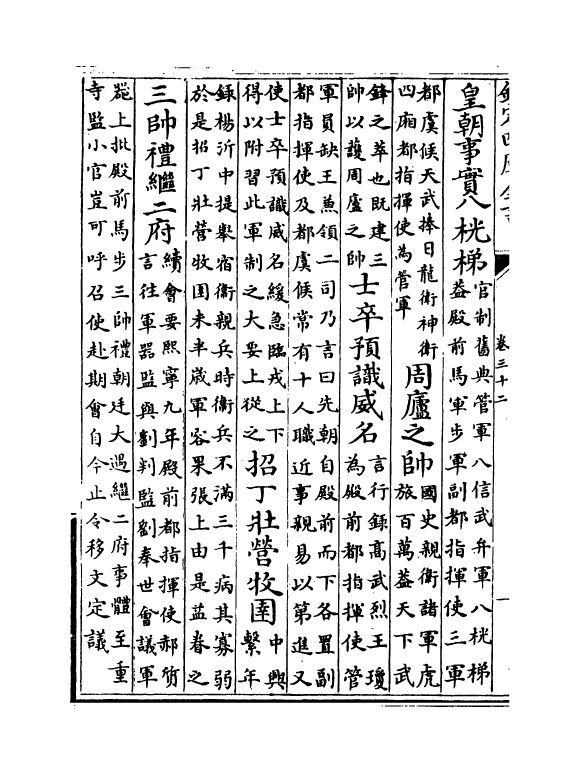 欽定四庫全書
卷三十二
一
皇朝事實八桄梯
官制舊典管軍八信武弁軍八桄梯
蓋殿前馬軍步軍副都指揮使三軍
都虞候天武捧日龍衛神衛
四廂都指揮使為管軍
周廬之帥
國史親衛諸軍虎
旅百萬蓋天下武
鋒之萃也既建三
帥以護周廬之帥
士卒預識威名
言行錄高武烈王瓊
為殿前都指揮使管
軍員缺王兼領二司乃言曰先朝自殿前而下各置副
都指揮使及都虞候常有十人職近事親易以第進又
使士卒預識威名緩急臨戎上下
得以附習此軍制之大要上從之
招丁壯營牧圉
中興
繫年
録楊沂中提舉宿衛親兵時衛兵不滿三千病其寡弱
於是招丁壯營牧圉未半歲軍容果張上由是益眷之
三帥禮繼二府
續會要熙寧九年殿前都指揮使郝質
言往軍器監與劉判監劉奉世會議軍
器上批殿前馬步三帥禮朝廷大遇繼二府事體至重
寺監小官豈可呼召使赴期會自今止令移文定議